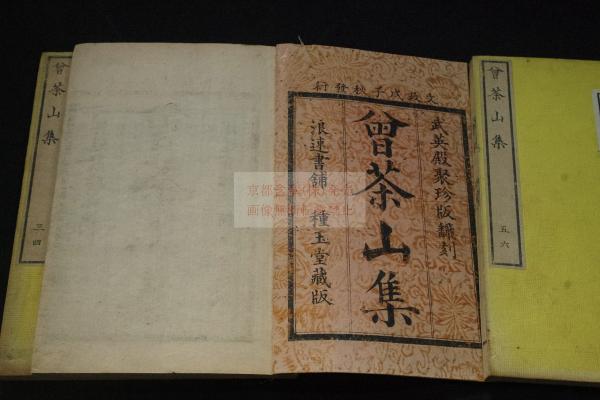 文政戊子秋發行
武英殿聚珍版飜刻
曾茶山集
浪速書舗 種玉堂藏版
曾茶山集
三四
曾茶山集
五六